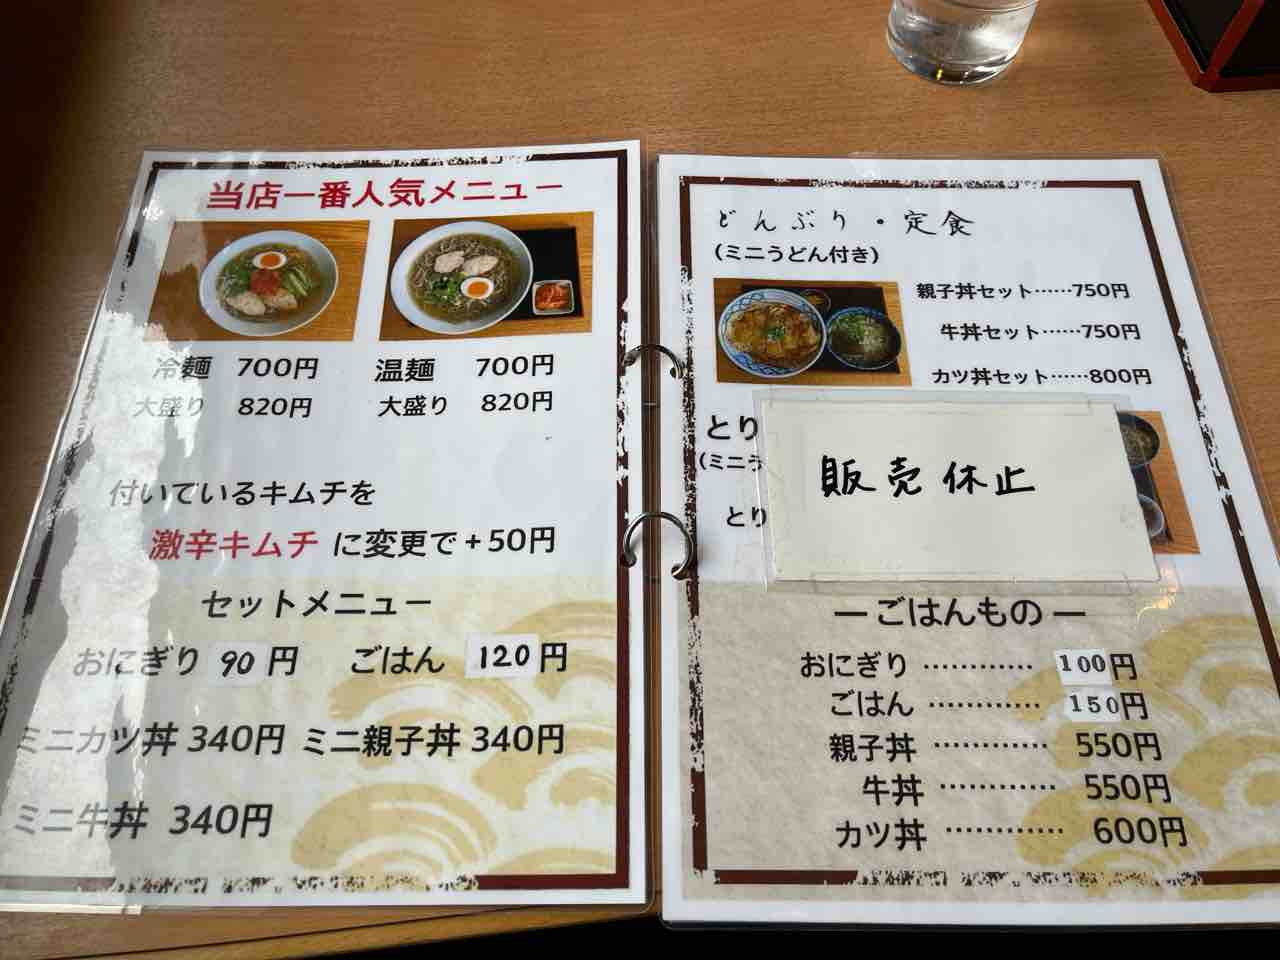 当店一番人気メニュー
冷麺 700円 温麺 700円
大盛り 820円 大盛り 820円
付いているキムチを
激辛キムチ に変更で+50円
セットメニュー
おにぎり 90円 ごはん 120円
ミニカツ丼 340円 ミニ親子丼 340円
ミニ牛丼 340円
どんぶり・定食
(ミニうどん付き)
親子丼セット……750円
牛丼セット……750円
カツ丼セット……800円
とり
(ミニう
とり
販売休止
ーごはんものー
おにぎり ………… 100円
ごはん ………… 150円
親子丼 ………… 550円
牛丼 ………… 550円
カツ丼 ………… 600円